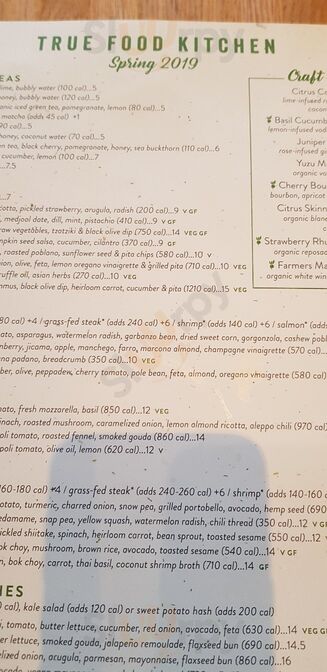 TRUE FOOD KITCHEN
Spring 2019
EAS
lime, bubbly water (100 cal)...5
honey, bubbly water (120 cal)...5
iced green tea, pomegranate, lemon (80 cal)...5
matcha (adds 45 cal) +1
90 cal)...5
honey, coconut water (70 cal)...5
tea, black cherry, pomegranate, honey, sea buckthorn (110 cal)...6
cucumber, lemon (100 cal)...7
...7.5
...7
pickled strawberry, arugula, radish (200 cal)...9 V GF
medjool date, dill, mint, pistachio (410 cal)...9 V GF
raw vegetables, tzatziki & black olive dip (750 cal)...14 VEG GF
seed salsa, cucumber, cilantro (370 cal)...9 GF
roasted poblano, sunflower seed & pita chips (580 cal)...10 V
onion, olive, feta, lemon oregano vinaigrette & grilled pita (710 cal)...10 VEG
truffle oil, asian herbs (270 cal)...10 VEG
black olive dip, heirloom carrot, cucumber & pita (1210 cal)...15 VEG
Craft
Citrus
lime-infused
Basil Cucumb
lemon-infused vod
Juniper
rose-infused gi
Yuzu M
organic
Cherry Bou
bourbon, apricot
Citrus Skinn
organic blan
Strawberry Rhu
organic reposa
Farmers Ma
organic white win
80 cal) +4 / grass-fed steak* (adds 240 cal) +6 / shrimp* (adds 140 cal) +6 / salmon* (adds
tomato, asparagus, watermelon radish, garbanzo bean, dried sweet corn, gorgonzola, cashew
cranberry, jicama, apple, manchego, farro, marcona almond, champagne vinaigrette (570 cal)...
grana padano, breadcrumb (350 cal)...10 VEG
olive, pepperoncini, cherry tomato, pole bean, feta, almond, oregano vinaigrette (580 cal)
fresh mozzarella, basil (850 cal)...12 VEG
spinach, roasted mushroom, caramelized onion, lemon almond ricotta, aleppo chili (970 cal)
tomato, roasted fennel, smoked gouda (860 cal)...14
tomato, olive oil, lemon (620 cal)...12 V
160-180 cal) +4 / grass-fed steak* (adds 240-260 cal) +6 / shrimp* (adds 140-160
potato, turmeric, charred onion, snow pea, grilled portobello, avocado, hemp seed (690
edamame, snap pea, yellow squash, watermelon radish, chili thread (350 cal)...12 V
pickled shiitake, spinach, heirloom carrot, bean sprout, toasted sesame (550 cal)...12
bok choy, mushroom, brown rice, avocado, toasted sesame (540 cal)...14 V GF
bok choy, carrot, thai basil, coconut shrimp broth (710 cal)...14 GF
cal), kale salad (adds 120 cal) or sweet potato hash (adds 200 cal)
tomato, butter lettuce, cucumber, red onion, avocado, feta (630 cal)...14 VEG
butter lettuce, smoked gouda, jalapeño remoulade, flaxseed bun (690 cal)...14.5
onion, arugula, parmesan, mayonnaise, flaxseed bun (860 cal)...16